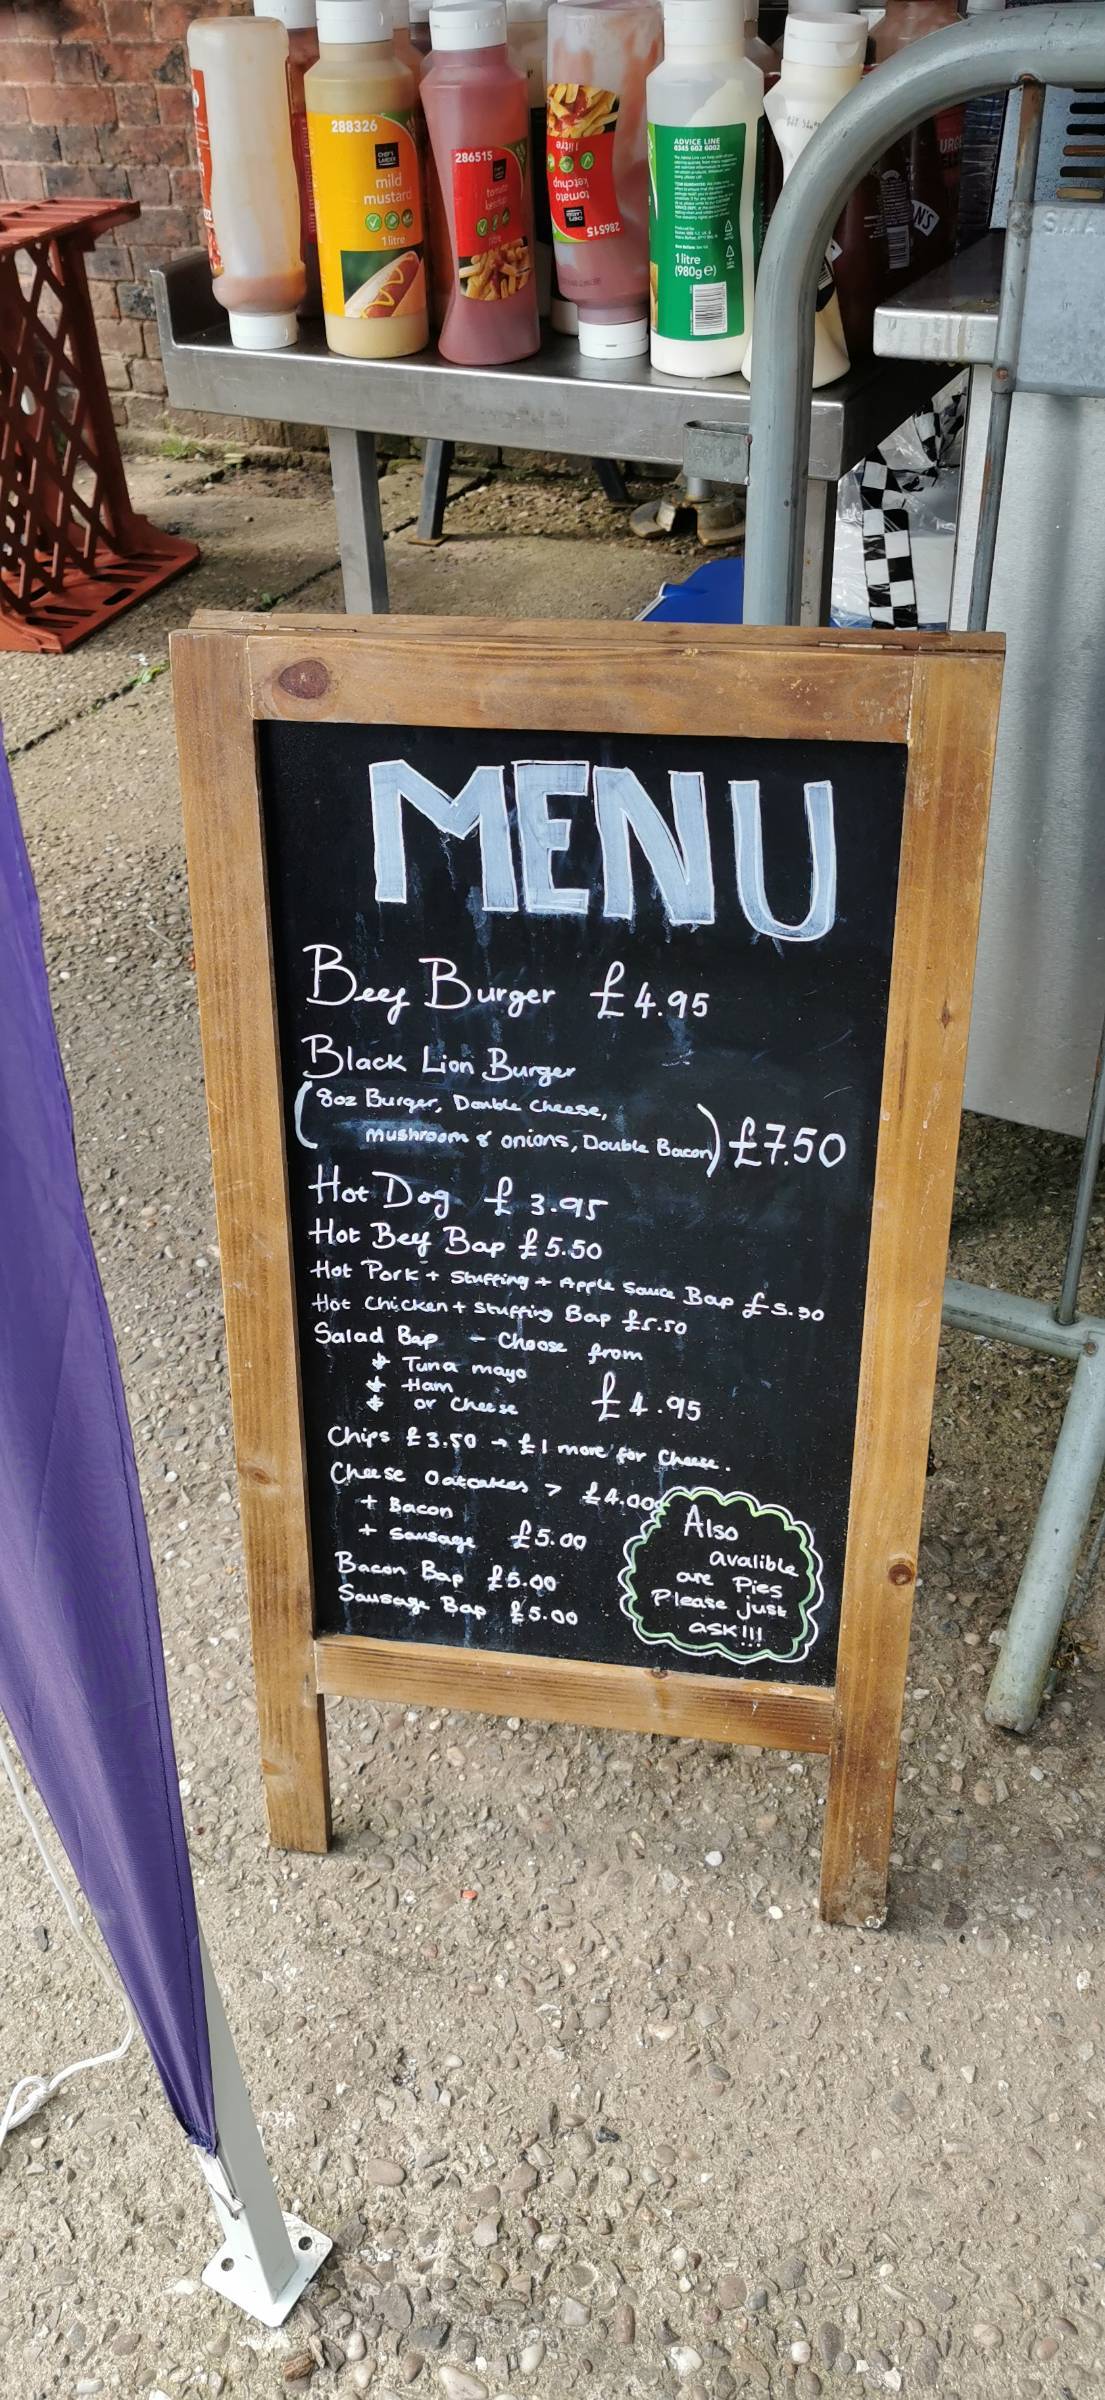 288326
CHEF'S LARDER
mild
mustard
1 litre
286515
tomato
ketchup
1 litre
tomato
ketchup
286515
ADVICE LINE
0345 602 6002
1 litre
(980g e)
MENU
Beef Burger £4.95
Black Lion Burger
(8oz Burger, Double Cheese,
mushroom & onions, Double Bacon) £7.50
Hot Dog £3.95
Hot Beef Bap £5.50
Hot Pork + Stuffing + Apple Sauce Bap £5.50
Hot Chicken + Stuffing Bap £5.50
Salad Bap - Choose from
Tuna mayo
Ham
or Cheese £4.95
Chips £3.50 → £1 more for Cheese.
Cheese Oatcakes > £4.00
+ Bacon
+ Sausage £5.00
Bacon Bap £5.00
Sausage Bap £5.00
Also
avalible
are Pies
Please just
ask!!!